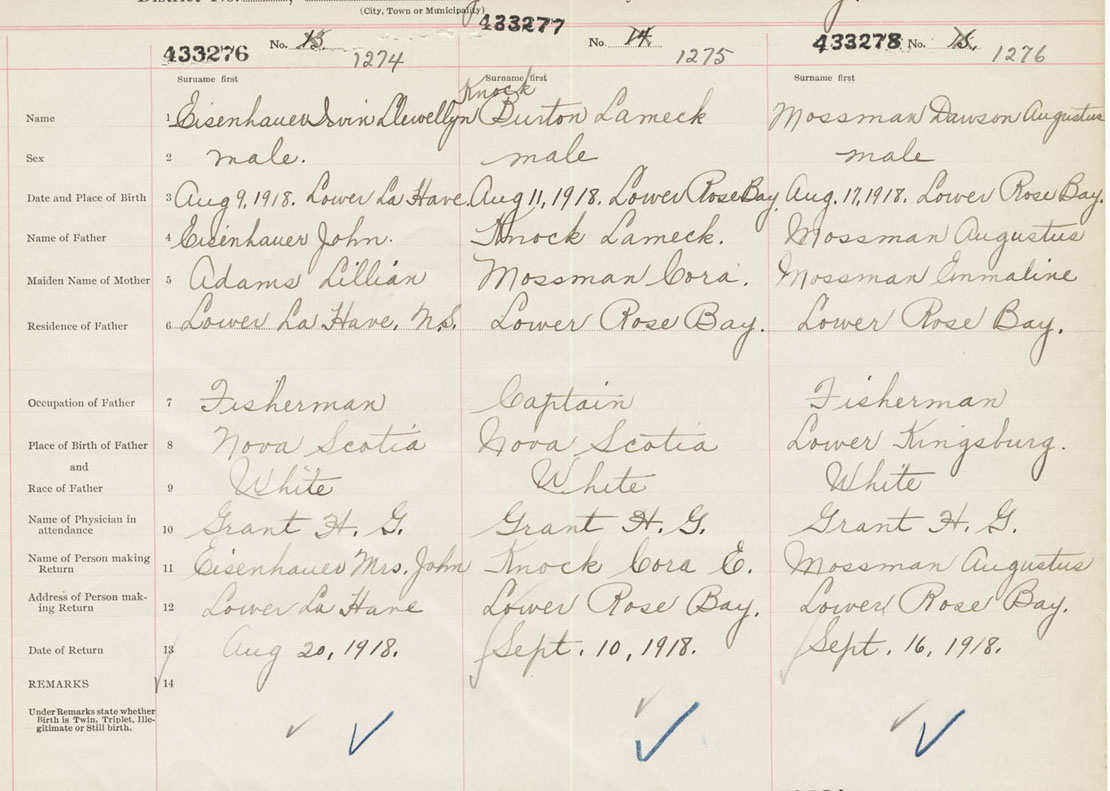 (City, Town or Municipality)
433276 No. 13 1274 433277 No. 14 1275 433278 No. 15. 1276
Surname first Surname first Surname first
Knock
Name 1 Eisenhauer Irvin Llewellyn Burton Lameck Mossman Dawson Augustus
Sex 2 male. male male
Date and Place of Birth 3 Aug 9, 1918. Lower La Have. Aug 11, 1918. Lower Rose Bay. Aug. 17, 1918. Lower Rose Bay.
Name of Father 4 Eisenhauer John. Knock Lameck. Mossman Augustus
Maiden Name of Mother 5 Adams Lillian Mossman Cora. Mossman Emmaline
Residence of Father 6 Lower La Have, N.S. Lower Rose Bay. Lower Rose Bay.
Occupation of Father 7 Fisherman Captain Fisherman
Place of Birth of Father 8 Nova Scotia Nova Scotia Lower Kingsburg.
and
Race of Father 9 White White White
Name of Physician in
attendance 10 Grant H. G. Grant H. G. Grant H. G.
Name of Person making
Return 11 Eisenhauer Mrs. John Knock Cora E. Mossman Augustus
Address of Person mak-
ing Return 12 Lower La Have Lower Rose Bay. Lower Rose Bay.
Date of Return 13 Aug 20, 1918. Sept. 10, 1918. Sept. 16, 1918.
REMARKS 14
Under Remarks state whether
Birth is Twin, Triplet, Ille-
gitimate or Still-birth.